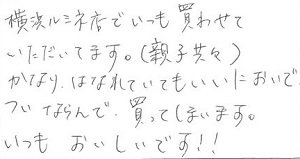 横浜ルミネ店でいつも買わせて
いただいてます。(親子共々)
かなり、はなれていてもいいにおいで
ついならんで、買ってしまいます。
いつも おいしいです!!